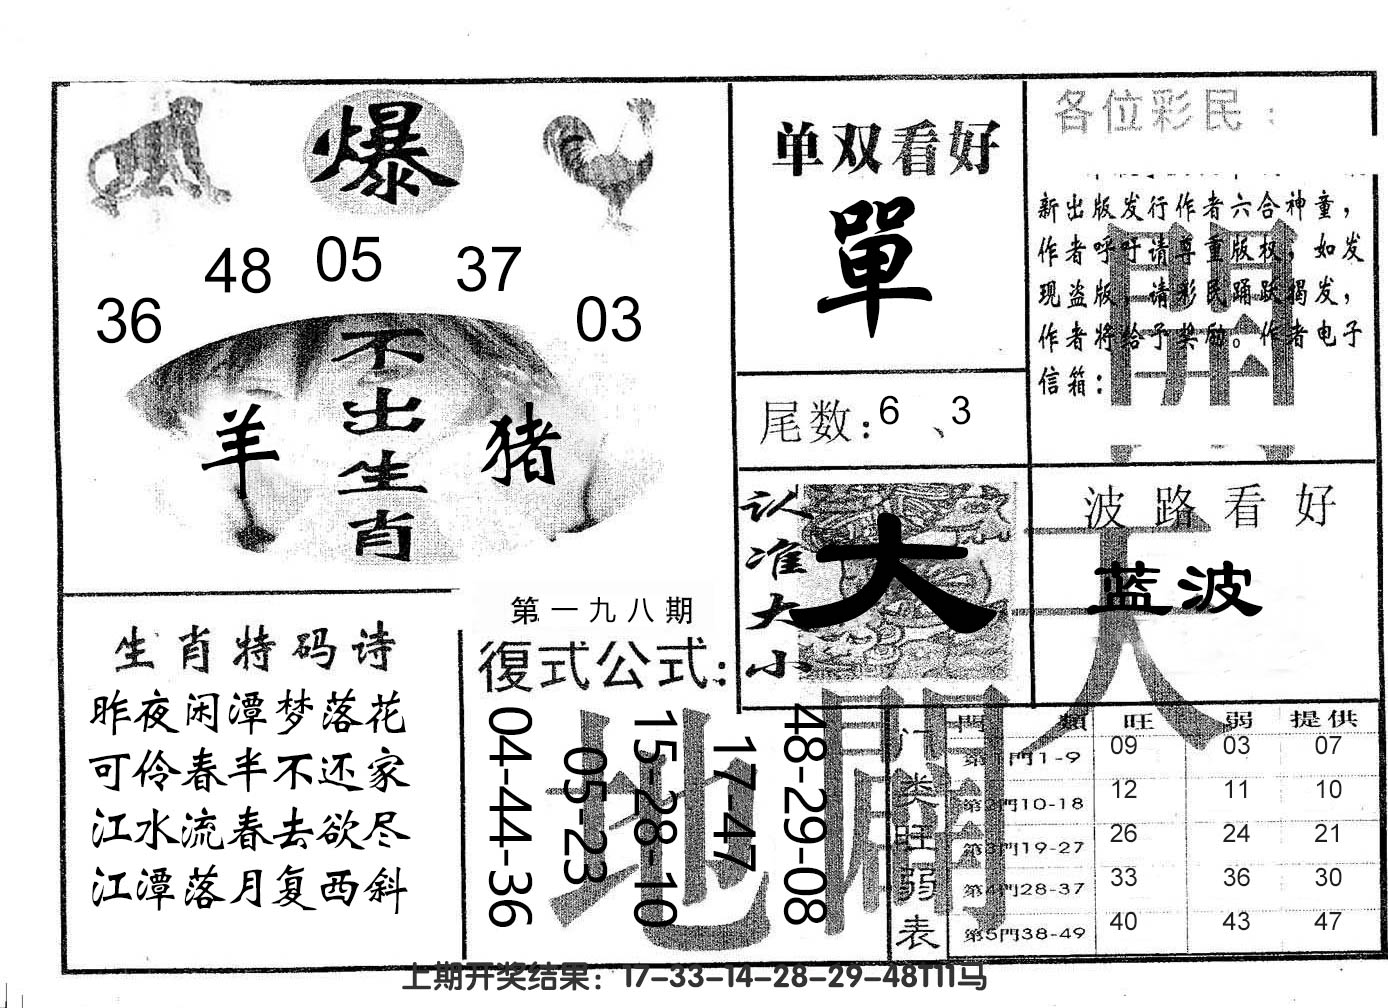 爆
36
48
05
37
03
不出生肖
羊
猪
单双看好
單
尾数:6、3
认准大小
大
各位彩民：
新出版发行作者六合神童，
作者呼吁请尊重版权，如发
现盗版，请彩民踊跃揭发，
作者将给予奖励。作者电子
信箱：
開
波路看好
蓝波
天
生肖特码诗
昨夜闲潭梦落花
可伶春半不还家
江水流春去欲尽
江潭落月复西斜
第一九八期
復式公式:
04-44-36
05-23
15-28-10
17-47
48-29-08
地
門类旺弱表
門類 旺 弱 提供
第1門1-9 09 03 07
第2門10-18 12 11 10
第3門19-27 26 24 21
第4門28-37 33 36 30
第5門38-49 40 43 47
上期开奖结果：17-33-14-28-29-48T11马